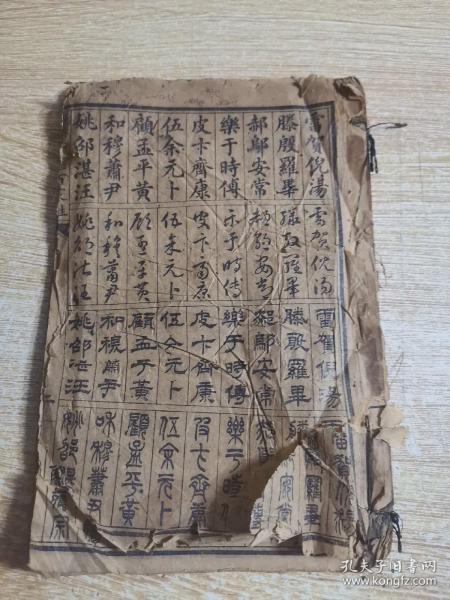 雷賀倪湯
滕殷羅畢
郝鄔安常
樂于時傅
皮卞齊康
伍余元卜
顧孟平黃
和穆蕭尹
姚邵湛汪
雷賀倪湯
滕殷羅畢
郝鄔安常
樂于時傅
皮卞齊康
伍余元卜
顧孟平黃
和穆蕭尹
姚邵湛汪
雷賀倪湯
滕殷羅畢
郝鄔安常
樂于時傅
皮卞齊康
伍余元卜
顧孟平黃
和穆蕭尹
姚邵湛汪
雷賀倪湯
羅畢
安常
樂于時
皮卞齊康
伍余元卜
顧孟平黃
和穆蕭尹
姚邵湛
孔夫子旧书网
www.kongfz.com